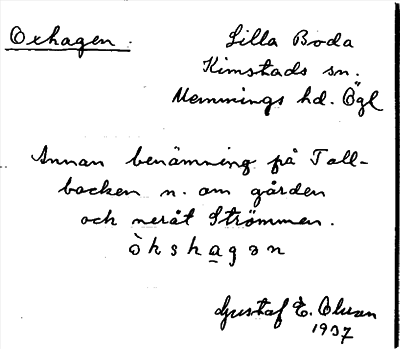 Oxhagen.
Lilla Boda
Kimstads sn.
Memmings hd. Ögl
Annan benämning på Tall-
backen n. om gården
och neråt Strömmen.
ò k s h a g ə n
Gustaf E. Olsson
1937